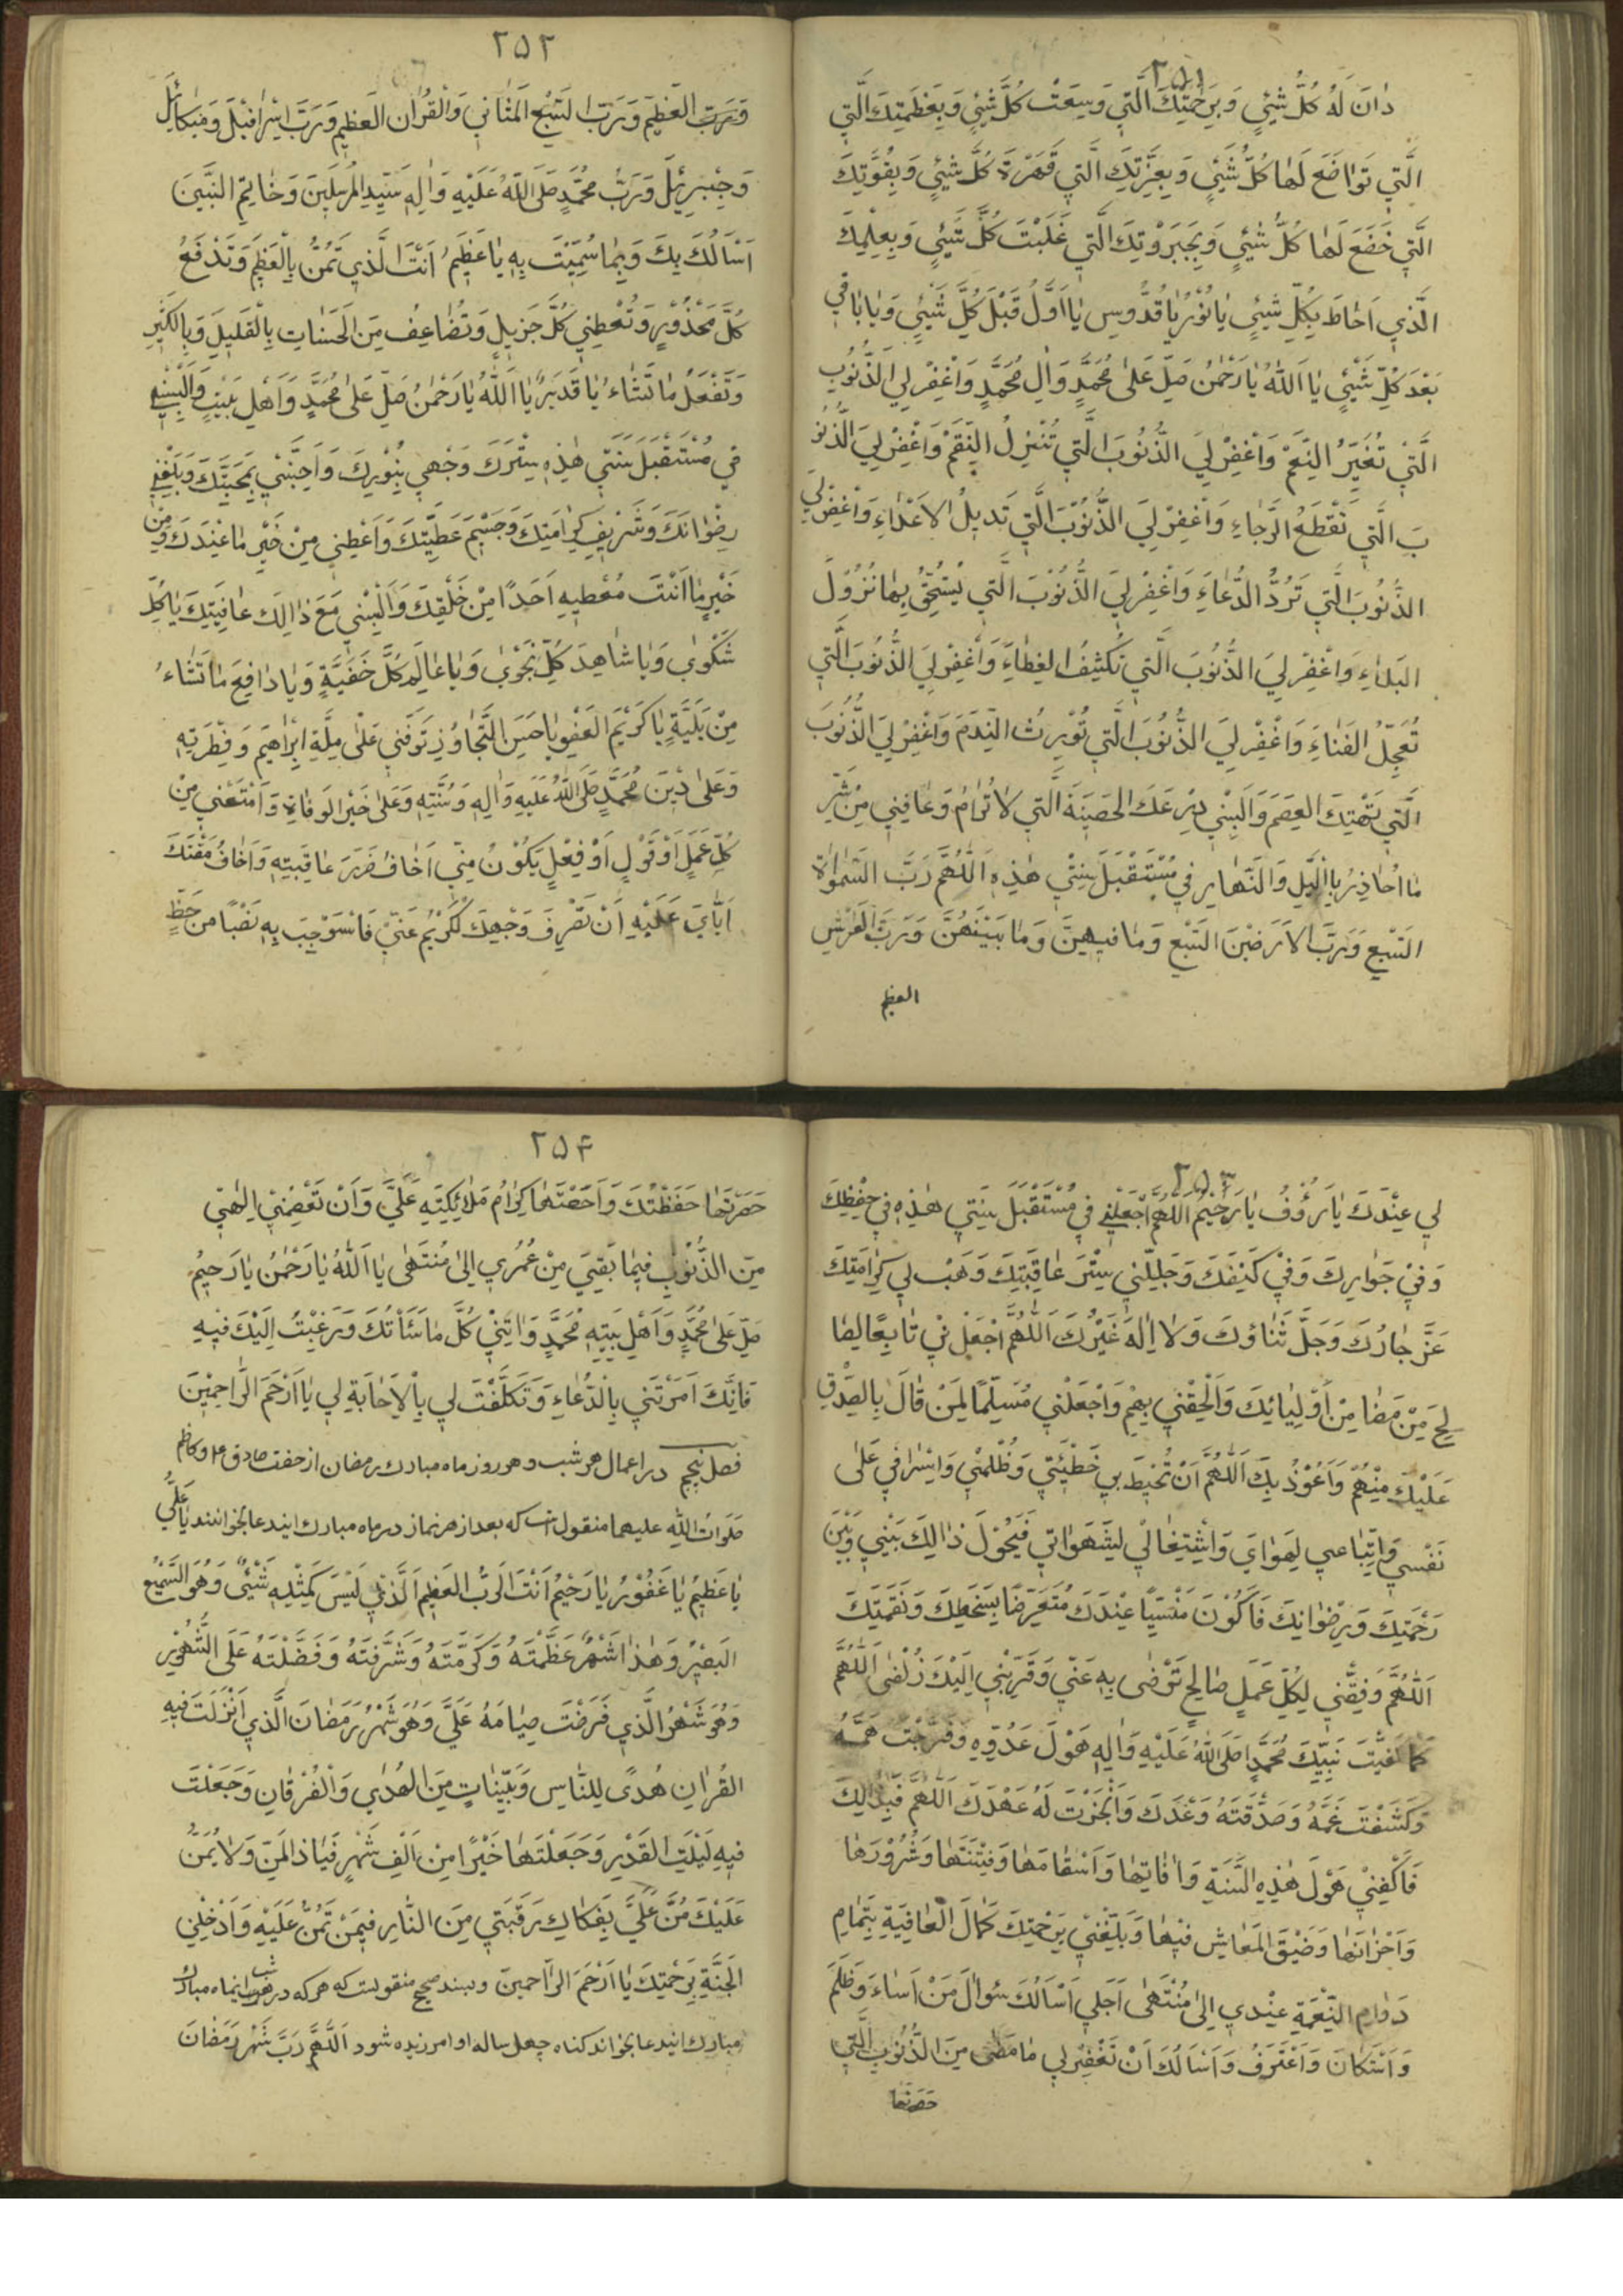 ٢٥١
دٰانَ لَهُ كُلُّ شَيْئٍ وَبِرَحْمَتِكَ الَّتِي وَسِعَتْ كُلَّ شَيْئٍ وَبِعَظَمَتِكَ الَّتِي
الَّتِي تَوٰاضَعَ لَهٰا كُلُّ شَيْئٍ وَبِعِزَّتِكَ الَّتِي قَهَرَةَ كُلَّ شَيْئٍ وَبِقُوَّتِكَ
الَّتِي خَضَعَ لَهٰا كُلُّ شَيْئٍ وَبِجَبَرُوتِكَ الَّتِي غَلَبْتَ كُلَّ شَيْئٍ وَبِعِلْمِكَ
الَّذِي اَحٰاطَ بِكُلِّ شَيْئٍ يٰا نُوْرُ يٰا قُدُّوسِ يٰا اَوَّلُ قَبْلَ كُلِّ شَيْئٍ وَيٰا بٰاقِي
بَعْدَ كُلِّ شَيْئٍ يٰا اَللّٰهُ يٰا رَحْمٰنُ صَلِّ عَلىٰ مُحَمَّدٍ وَاٰلِ مُحَمَّدٍ وَاغْفِرْ لِيَ الذُّنُوبَ
الَّتِي تُغَيِّرُ النِّعَمَ وَاغْفِرْ لِيَ الذُّنُوبَ الَّتِي تُنْزِلُ النِّقَمَ وَاغْفِرْ لِيَ الذُّنُو
بَ الَّتِي تَقْطَعُ الرَّجٰاءِ وَاغْفِرْ لِيَ الذُّنُوْبَ الَّتِي تَدِيلُ الاَعْدٰاءِ وَاغْفِرْ لِيَ
الذُّنُوبَ الَّتِي تَرُدُّ الدُّعٰاءَ وَاغْفِرْ لِيَ الذُّنُوْبَ الَّتِي يُسْتَحَقُّ بِهٰا نُزُوْلَ
البَلٰاءِ وَاغْفِرْ لِيَ الذُّنُوبَ الَّتِي تَكْشِفُ الغِطٰاءَ وَاغْفِرْ لِيَ الذُّنُوبَ الَّتِي
تُعَجِّلُ الفَنٰاءَ وَاغْفِرْ لِيَ الذُّنُوبَ الَّتِي تُوْرِثُ النَّدَمَ وَاغْفِرْ لِيَ الذُّنُوبَ
الَّتِي تَهْتِكَ العِصَمَ وَاَلْبِسْنِي دِرْعَكَ الحَصِينَةَ الَّتِي لاٰ تُرٰامُ وَعٰافِنِي مِنْ شَرِّ
مٰا اُحٰاذِرُ بِالَّيْلِ وَالنَّهٰارِ فِي مُسْتَقْبَلِ سَنَتِي هٰذِهِ اَللّٰهُمَّ رَبَّ السَّمٰوٰاةِ
السَّبْعِ وَرَبَّ الاَرَضِيْنَ السَّبْعِ وَمٰا فِيهِنَّ وَمٰا بَيْنَهُنَّ وَرَبَّ الْعَرْشِ
العظيم
٢٥٢
وَرَبَّ العَظِيمِ وَرَبَّ السَّبْعِ المَثٰانِي وَالْقُرْاٰنِ العَظِيمِ وَرَبَّ اِسْرٰافِيْلَ وَمِيكٰائِيلَ
وَجِبْرِئِيلَ وَرَبَّ مُحَمَّدٍ صَلَّى اللّٰهُ عَلَيْهِ وَاٰلِهِ سَيِّدِ المُرْسَلِيْنَ وَخٰاتِمِ النَّبِيِّنَ
اَسْاَلُكَ بِكَ وَبِمٰا سَمَّيْتَ بِهِ يٰا عَظِيمُ اَنْتَ الَّذِي تَمُنُّ بِالْعَظِيمِ وَتَدْفَعُ
كُلَّ مَحْذُوْرٍ وَتُعْطِيْ كُلَّ جَزِيلٍ وَتُضٰاعِفُ مِنَ الْحَسَنٰاتِ بِالْقَلِيلِ وَبِالكَثِيرِ
وَتَفْعَلُ مٰا تَشٰاءُ يٰا قَدِيرُ يٰا اَللّٰهُ يٰا رَحْمٰنُ صَلِّ عَلىٰ مُحَمَّدٍ وَاَهْلِ بَيْتِهِ وَاَلْبِسْنِي
فِي مُسْتَقْبَلِ سَنَتِي هٰذِهِ سِتْرَكَ وَجْهِي بِنُوْرِكَ وَاَحِبَّنِي بِمَحَبَّتِكَ وَبَلِّغْنِي
رِضْوٰانَكَ وَشَرِيفِ كَرٰامَتِكَ وَجَسِيْمَ عَطِيَّتِكَ وَاَعْطِنِي مِنْ خَيْرِ مٰا عِنْدَكَ وَمِنْ
خَيْرِ مٰا اَنْتَ مُعْطِيهِ اَحَدًا مِنْ خَلْقِكَ وَاَلْبِسْنِي مَعَ ذٰالِكَ عٰافِيَتِكَ يٰا كُلِّ
شَكْوٰى وَيٰا شٰاهِدَ كُلِّ نَجْوٰى وَيٰا عٰالِمَ كُلِّ خَفِيَّةٍ وَيٰا دٰافِعَ مٰا تَشٰاءُ
مِنْ بَلِيَّةٍ يٰا كَرِيْمَ العَفْوِ يٰا حَسَنَ التَّجٰاوُزِ تَوَفَّنِي عَلىٰ مِلَّةِ اِبْرٰاهِيمَ وَفِطْرَتِهِ
وَعَلىٰ دِيْنِ مُحَمَّدٍ صَلَّى اللّٰهُ عَلَيْهِ وَاٰلِهِ وَسُنَّتِهِ وَعَلىٰ خَيْرِ الوَفٰاةِ وَامْنَعْنِي مِنْ
كُلِّ عَمَلٍ اَوْ قَوْلٍ اَوْ فِعْلٍ يَكُوْنُ مِنِّي اَخٰافُ ضَرَرَ عٰاقِبَتِهِ وَاَخٰافُ مَقْتَكَ
اِيّٰايَ عَلَيْهِ اَنْ تَصْرِفَ وَجْهِكَ الْكَرْيْمُ عَنِّي فَاَسْتَوْجِبَ بِهِ نَقْصًا مِنْ حَظٍّ
٢٥٣
لِي عِنْدَكَ يٰا رَؤُفُ يٰا رَحْيْمُ اَللّٰهُمَّ اجْعَلْنِي فِي مُسْتَقْبَلِ سَنَتِي هٰذِهِ فِي حِفْظِكَ
وَفِيْ جَوٰارِكَ وَفِيْ كَنَفِكَ وَجَلِّلْنِي سِتْرَ عٰاقِبَتِكَ وَهَبْ لِي كَرٰامَتِكَ
عَزَّ جٰارُكَ وَجَلَّ ثَنٰاؤُكَ وَلاٰ اِلٰهَ غَيْرُكَ اَللّٰهُمَّ اجْعَلْنِي تٰابِعًا لِصٰا
لِحِ مَنْ مَضٰا مِنْ اَوْلِيٰائِكَ وَاَلْحِقْنِي بِهِمْ وَاجْعَلْنِي مُسَلِّمًا لِمَنْ قٰالَ بِالصِّدْقِ
عَلَيْكَ مِنْهُمْ وَاَعُوْذُ بِكَ اَللّٰهُمَّ اَنْ تُحْيِطَ بِي خَطِيْئَتِي وَظُلْمِيْ وَاِسْرٰافِي عَلىٰ
نَفْسِي وَاتِّبٰاعِي لِهَوٰايَ وَاشْتِغٰالِي لِشَهَوٰاتِي فَيَحُوْلَ ذٰالِكَ بَيْنِي وَبَيْنَ
رَحْمَتِكَ وَرِضْوٰانِكَ فَاَكُوْنَ مَنْسِيًّا عِنْدَكَ مُتَعَرِّضًا بِسَخَطِكَ وَنَقْمَتِكَ
اَللّٰهُمَّ وَفِّقْنِي لِكُلِّ عَمَلٍ صٰالِحٍ تَرْضٰى بِهِ عَنِّي وَقَرِّبْنِي اِلَيْكَ زُلْفىٰ اَللّٰهُمَّ
كَمٰا كَفَيْتَ نَبِيِّكَ مُحَمَّدًا صَلَّى اللّٰهُ عَلَيْهِ وَاٰلِهِ هَوْلَ عَدُوِّهِ وَفَرَّجْتَ هَمَّهُ
وَكَشَفْتَ غَمَّهُ وَصَدَقْتَهُ وَعْدَكَ وَاَنْجَزْتَ لَهُ عَهْدَكَ اَللّٰهُمَّ فَبِذٰلِكَ
فَاكْفِنِيْ هَوْلَ هٰذِهِ السَّنَةِ وَاٰفٰاتِهٰا وَاَسْقٰامَهٰا وَفِتْنَتَهٰا وَشُرُوْرَهٰا
وَاَحْزٰانَهٰا وَضَيْقَ المَعٰاشِ فِيْهٰا وَبَلِّغْنِيْ بِرَحْمَتِكَ كَمٰالَ الْعٰافِيَةِ بِتَمٰامِ
دَوٰامِ النِّعْمَةِ عِنْدِي اِلىٰ مُنْتَهىٰ اَجَلِي اَسْاَلُكَ سُوٰالَ مَنْ اَسٰاءَ وَظَلَمَ
وَاسْتَكٰانَ وَاعْتَرَفُ وَاَسْاَلُكَ اَنْ تَغْفِرَ لِي مٰا مَضىٰ مِنَ الذُّنُوْبِ الَّتِي
حَصَرَتْهٰا
٢٥٤
حَصَرَتْهٰا حَفَظَتُكَ وَاَحْصَتْهٰا كِرٰامُ مَلاٰئِكَتِهِ عَلَيَّ وَاَنْ تَعْصِمَنِيْ اِلٰهِيْ
مِنَ الذُّنُوْبِ فِيمٰا بَقِيَ مِنْ عُمُرِي اِلىٰ مُنْتَهىٰ يٰا اَللّٰهُ يٰا رَحْمٰنُ يٰا رَحِيْمُ
صَلِّ عَلىٰ مُحَمَّدٍ وَاَهْلِ بَيْتِهِ مُحَمَّدٍ وَاٰتِنِيْ كُلَّ مٰا سَئَاْتُكَ وَرَغِبْتُ اِلَيْكَ فِيهِ
فَاِنَّكَ اَمَرْتَنِي بِالدُّعٰاءِ وَتَكَلَّفْتَ لِي بِالْاِجٰابَةِ لِي يٰا اَرْحَمَ الرّٰاحِمِيْنَ
فصل پنجم در اعمال هر شب و هر روز ماه مبارك رمضان از حضرت صادق ع و كاظم
صَلَوٰاتُ اللهِ عليهما منقول است كه بعد از هر نماز در ماه مبارك ايندعا بخوانند يٰا عَلِيُّ
يٰا عَظِيْمُ يٰا غَفُوْرُ يٰا رَحْيْمُ اَنْتَ الرَّبُّ العَظِيم اَلَّذِي لَيْسَ كَمِثْلِهِ شَيْئٌ وَهُوَ السَّمِيْعُ
البَصِيْرُ وَهٰذٰا شَهْرٌ عَظَّمْتَهُ وَكَرَّمْتَهُ وَشَرَّفْتَهُ وَفَضَّلْتَهُ عَلَى الشُّهُوْرِ
وَهُوَ شَهْرُ الَّذِي فَرَضْتَ صِيٰامَهُ عَلَيَّ وَهُوَ شَهْرُ رَمَضٰانَ الَّذِي اَنْزَلْتَ فِيهِ
القُرْاٰنِ هُدًى لِلنّٰاسِ وَبَيِّنٰاتٍ مِنَ الهُدٰى وَالْفُرْقٰانِ وَجَعَلْتَ
فِيهِ لَيْلَتِ القَدْرِ وَجَعَلْتَهٰا خَيْرًا مِن اَلْفِ شَهْرٍ فَيٰا ذَا المَنِّ وَلاٰ يُمَنُّ
عَلَيْكَ مُنَّ عَلَيَّ بِفَكٰاكِ رَقَبَتِي مِنَ النّٰارِ فِيمَنْ تَمُنُّ عَلَيْهِ وَاَدْخِلْنِي
الجَنَّةِ بِرَحْمَتِكَ يٰا اَرْحَمَ الرّٰاحمينَ وبسند صحيح منقولست كه هر كه در هر شب اينماه مبارك
مبارك ايندعا بخواند كناه چهل ساله او امرزيده شود اَللّٰهُمَّ رَبَّ شَهْرِ رَمَضٰانَ